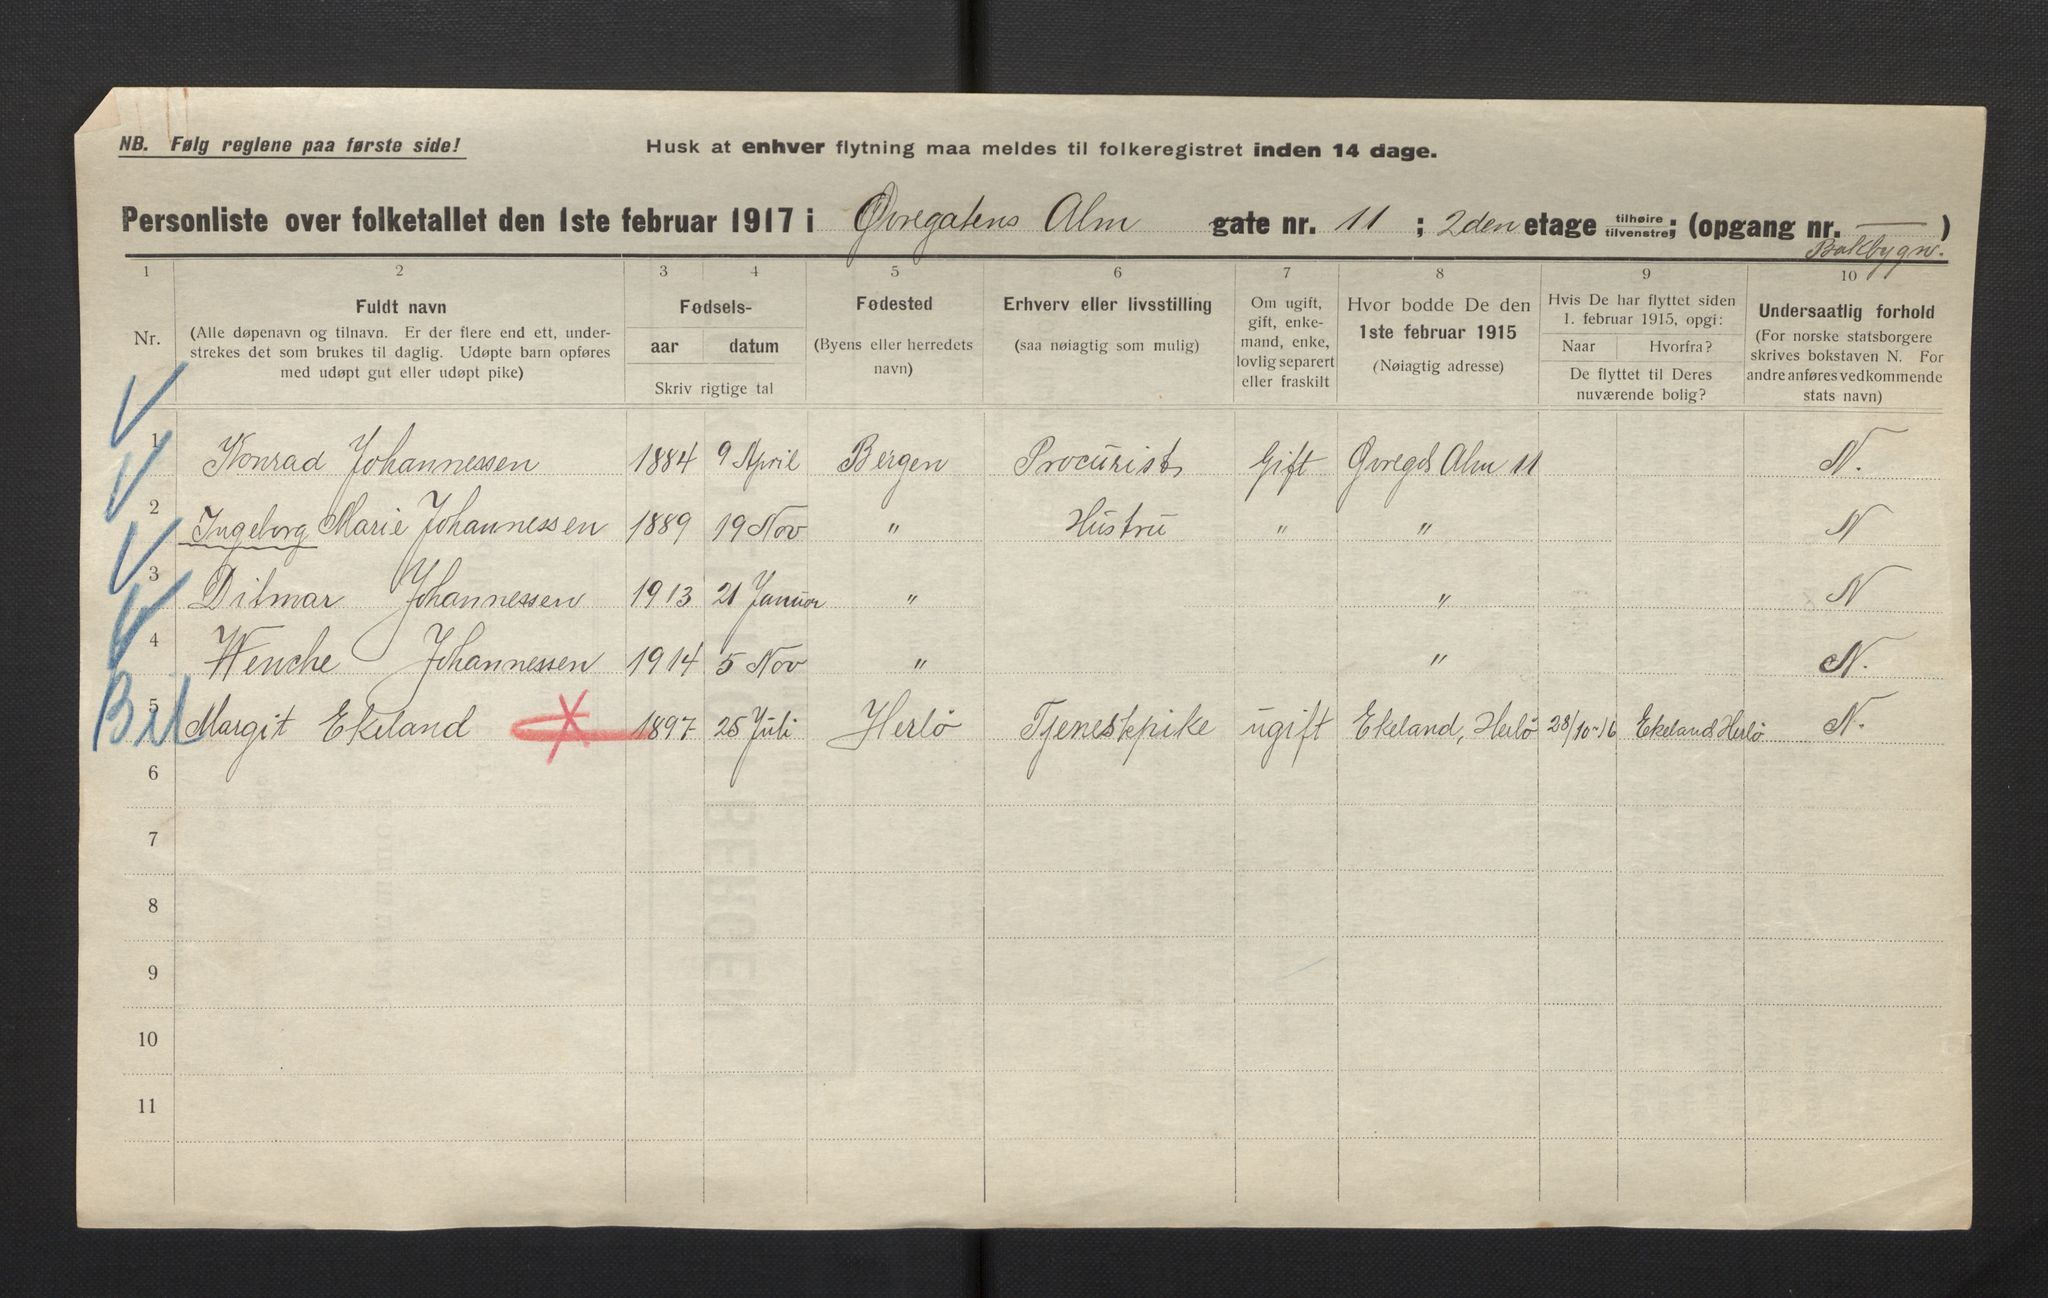 NB. Følg reglene paa første side!
Husk at enhver flytning maa meldes til folkeregistret inden 14 dage.
Personliste over folketallet den 1ste februar 1917 i Øvregatens Alm gate nr. 11 ; 2den etage tilhøire tilvenstre; (opgang nr. — )
Bakbygn.
1 2 3 4 5 6 7 8 9 10
Nr.
Fuldt navn
(Alle døpenavn og tilnavn. Er der flere end ett, under-
strekes det som brukes til daglig. Udøpte barn opføres
med udøpt gut eller udøpt pike)
Fødsels-
aar datum
Skriv rigtige tal
Fødested
(Byens eller herredets
navn)
Erhverv eller livsstilling
(saa nøiagtig som mulig)
Om ugift,
gift, enke-
mand, enke,
lovlig separert
eller fraskilt
Hvor bodde De den
1ste februar 1915
(Nøiagtig adresse)
Hvis De har flyttet siden
1. februar 1915, opgi:
Naar Hvorfra?
De flyttet til Deres
nuværende bolig?
Undersaatlig forhold
(For norske statsborgere
skrives bokstaven N. For
andre anføres vedkommende
stats navn)
1 Konrad Johannessen 1884 9 April Bergen Procurist Gift Øvregds Alm 11 N.
2 Ingeborg Marie Johannessen 1889 19 Nov " Hustru " " N
3 Ditmar Johannessen 1913 21 Januar " " N
4 Wenche Johannessen 1914 5 Nov " " N.
Bil 5 Margit Ekeland 1897 25 Juli Herlö Tjenestpike ugift Ekeland, Herlö 28/10-16 Ekeland Herlö N.
6
7
8
9
10
11